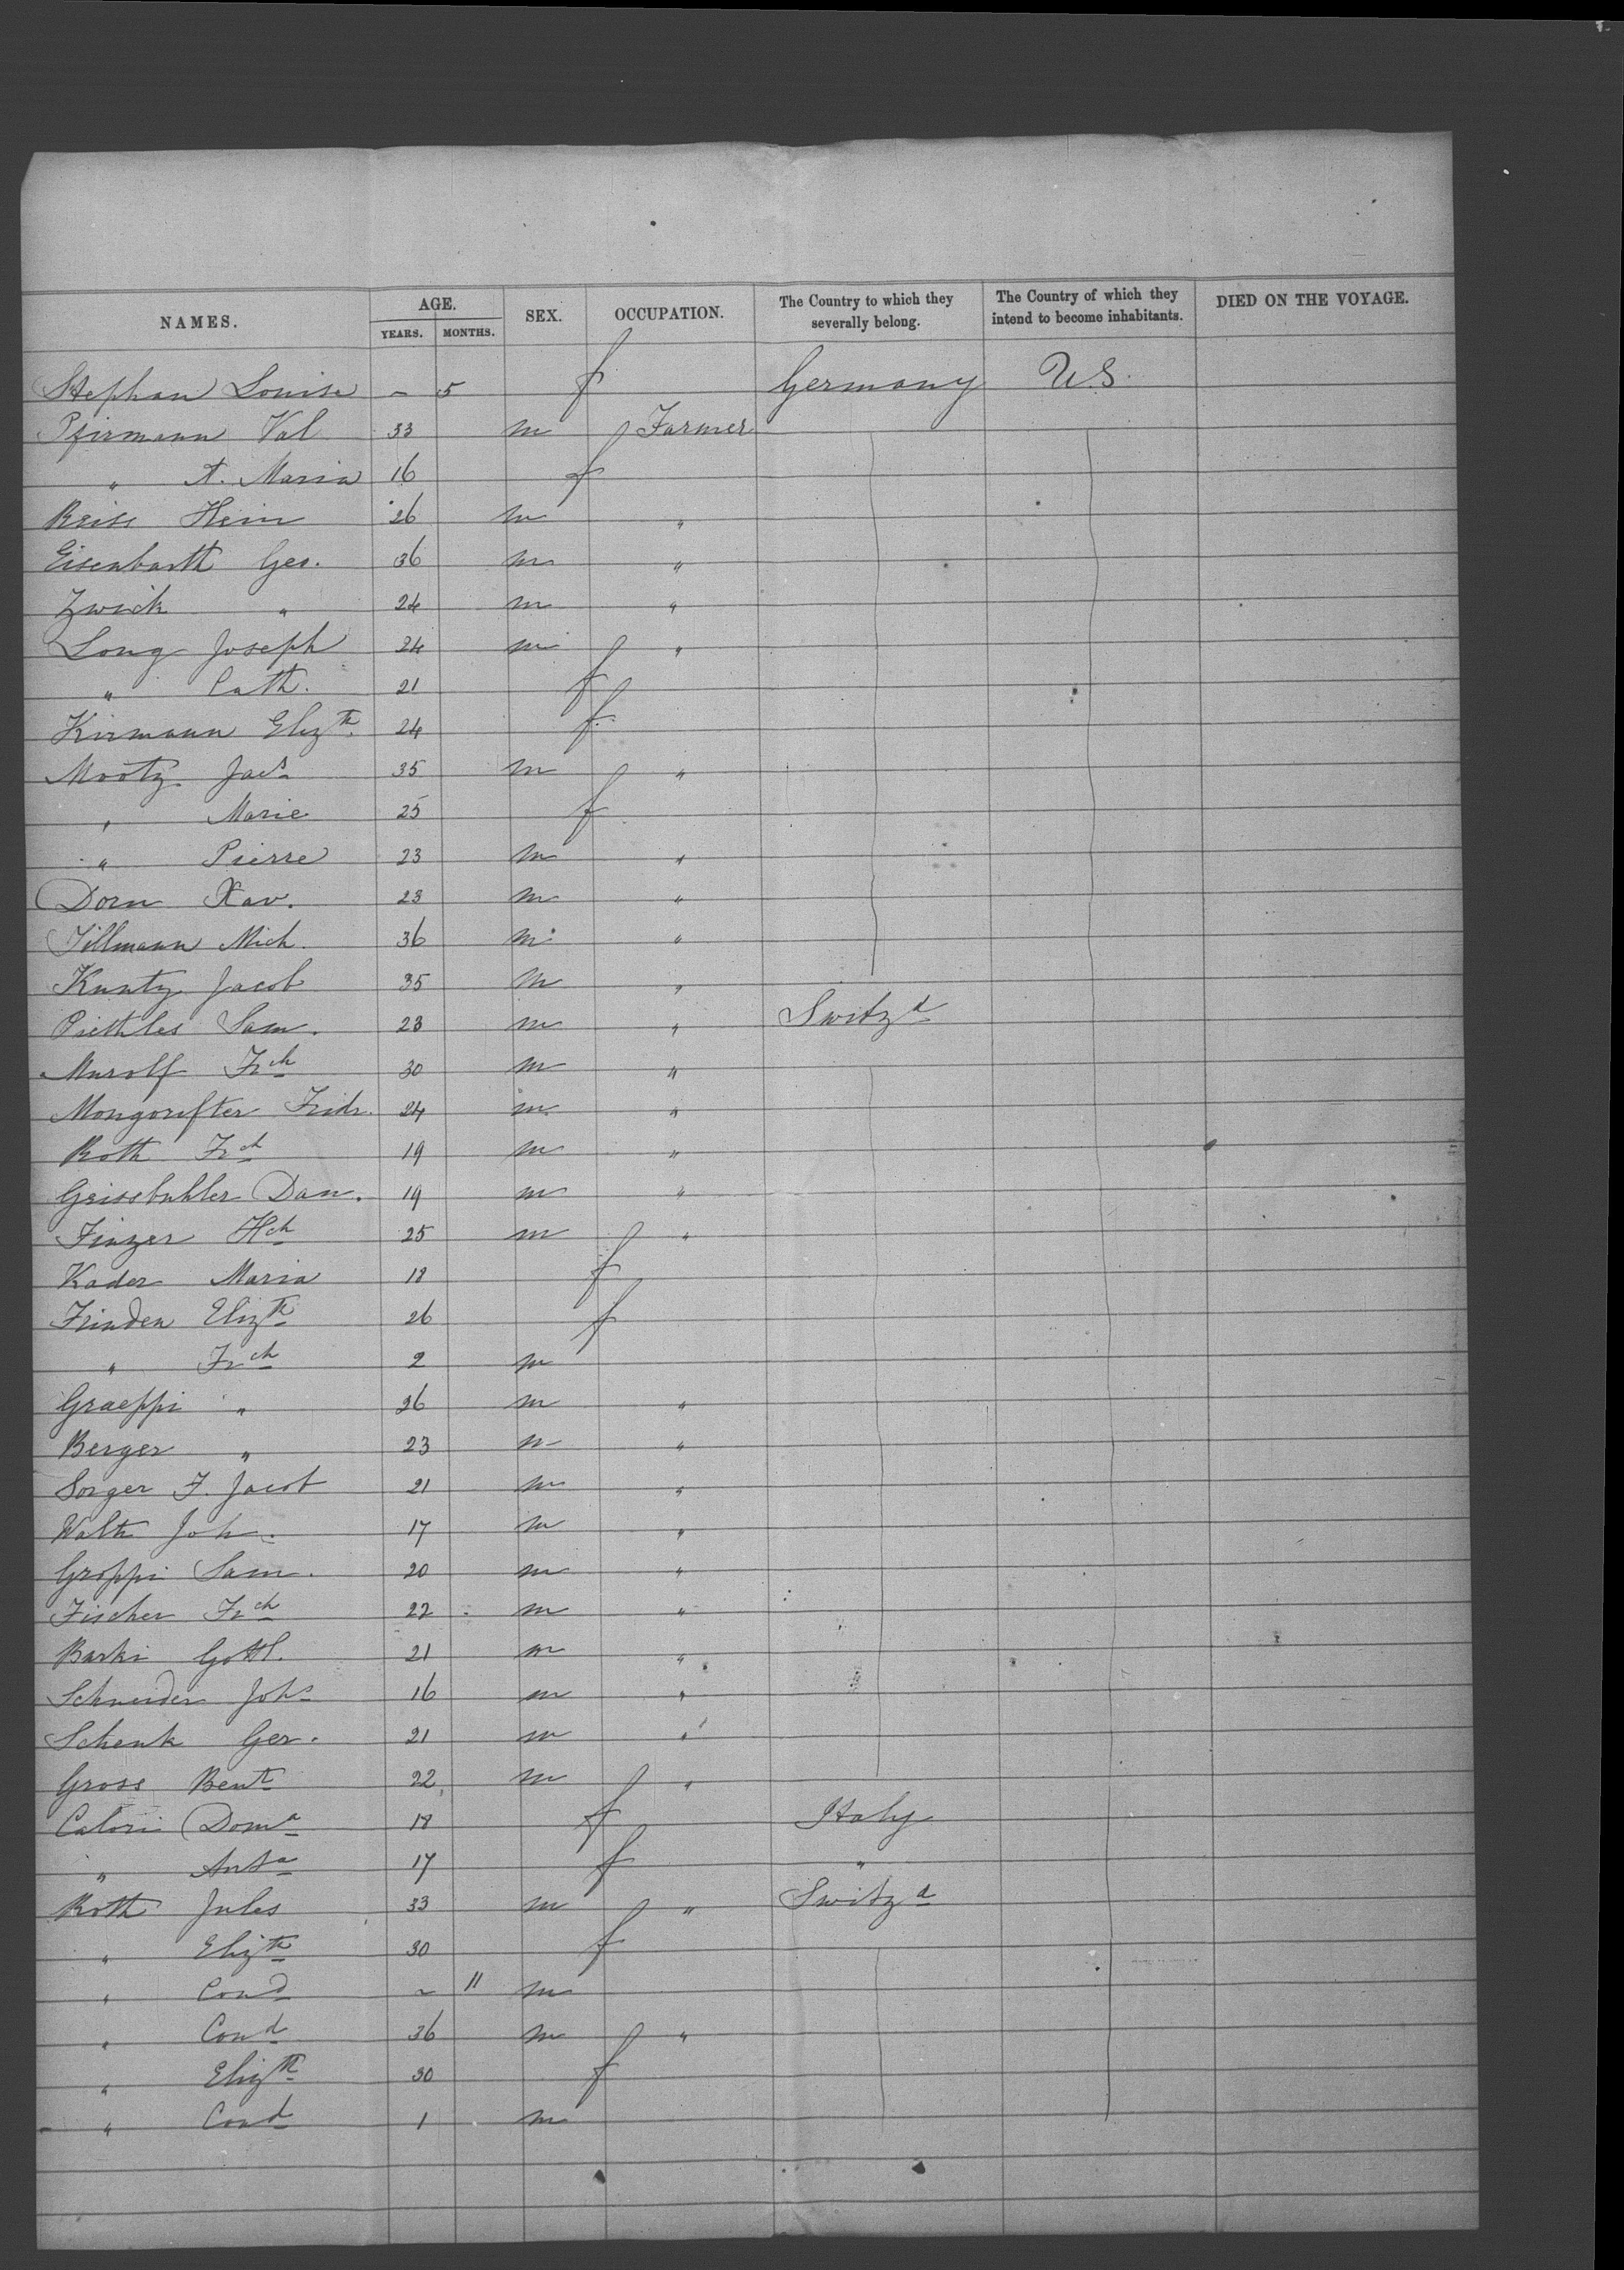 NAMES. AGE. SEX. OCCUPATION. The Country to which they severally belong. The Country of which they intend to become inhabitants. DIED ON THE VOYAGE.
YEARS. MONTHS.
Stephan Louise - 5 f Germany U S.
Pfirmann Val 33 m Farmer
" A. Maria 16 f
Reiss Hein 26 m "
Eisenbarth Geo. 36 m "
Zwick " 24 m "
Long Joseph 24 m "
" Cath. 21 f
Kirmann Elizth 24 f
Mootz Jacs 35 m "
" Marie 25 f
" Pierre 23 m "
Dorn Xav. 23 m "
Tillmann Mich. 36 m "
Kuntz Jacob 35 m "
Piethles Sam. 23 m " Switzd
Murolf Frch 30 m "
Mongorefter Fridr. 24 m "
Roth Frch 19 m "
Geissbuhler Dan. 19 m "
Finzer Hch 25 m "
Kader Maria 18 f
Frinden Elizth 26 f
" Frch 2 m
Graeppi " 26 m "
Berger " 23 m "
Sorger F. Jacob 21 m "
Walth Joh. 17 m "
Groppi Sam. 20 m "
Fischer Frch 22 m "
Barki Gottl. 21 m "
Schneider Johs 16 m "
Schenk Ger. 21 m "
Gross Bent 22 m "
Calori Doma 18 f Italy
" Anta 17 f "
Roth Jules 33 m " Switzd
" Elizth 30 f
" Cond - 11 m
" Cond 36 m "
" Elizth 30 f
" Cond 1 m